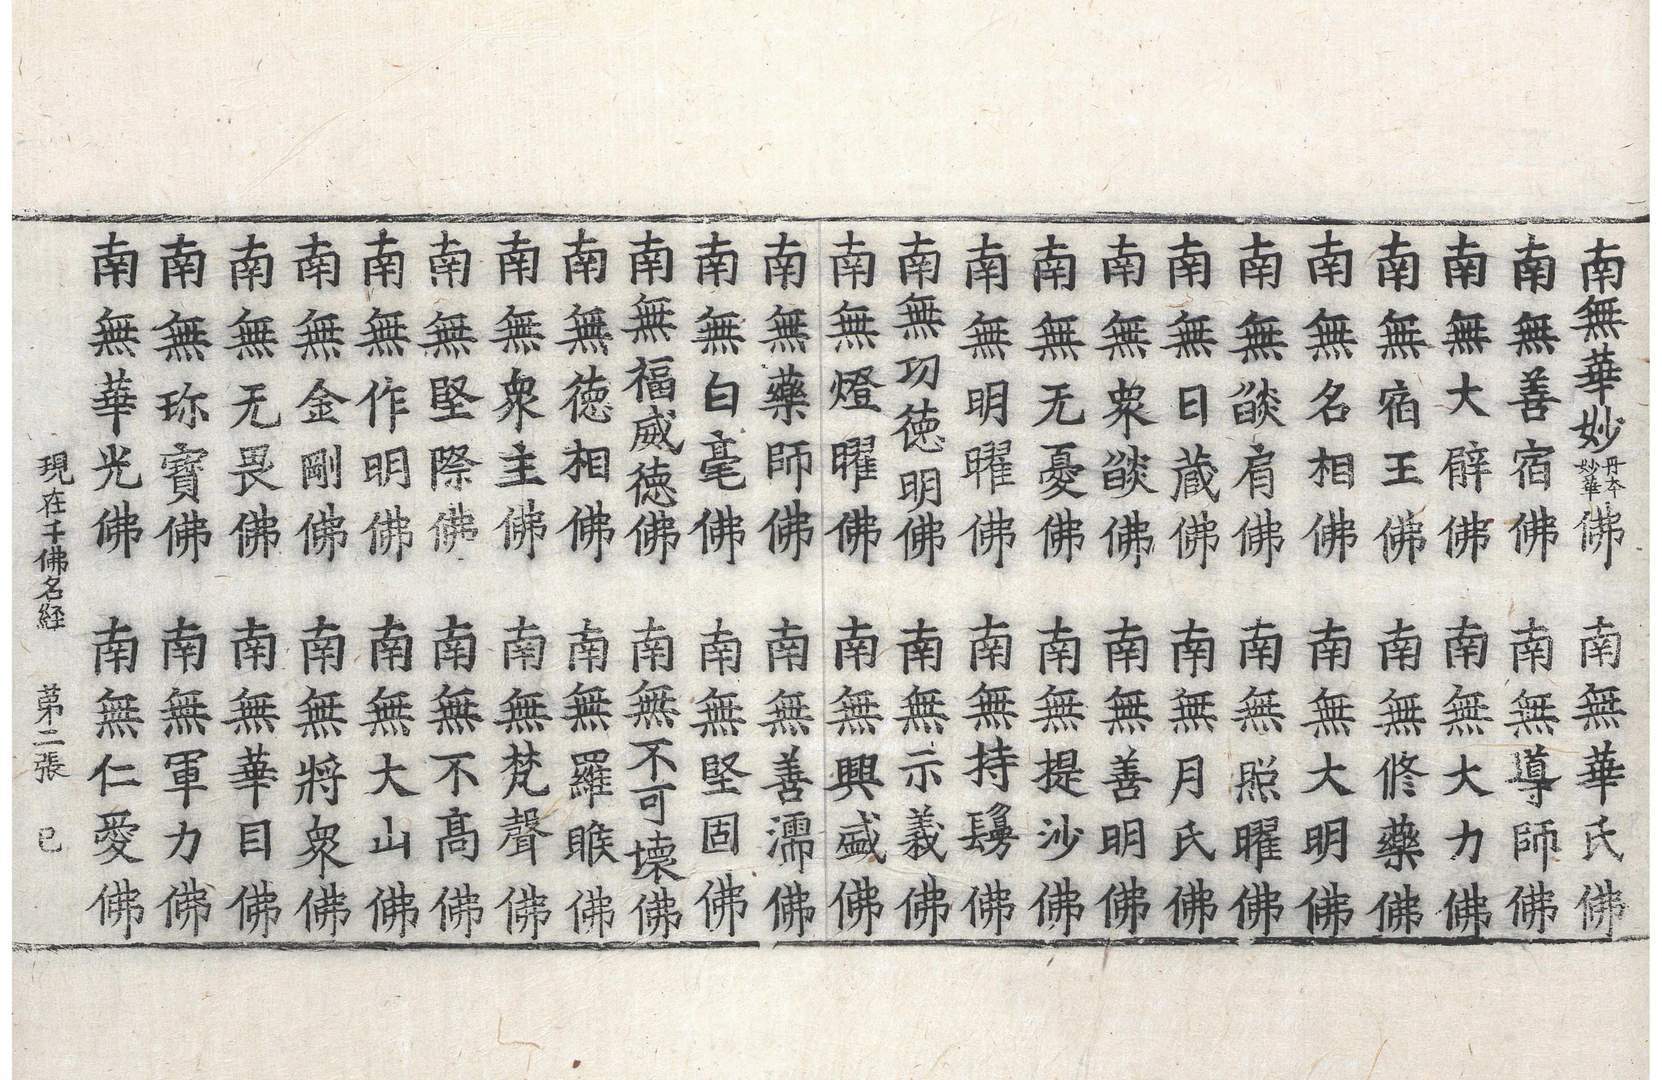 南無華妙丹本妙華佛 南無華氏佛
南無善宿佛 南無導師佛
南無大臂佛 南無大力佛
南無宿王佛 南無修藥佛
南無名相佛 南無大明佛
南無燄肩佛 南無照曜佛
南無日藏佛 南無月氏佛
南無衆燄佛 南無善明佛
南無无憂佛 南無提沙佛
南無明曜佛 南無持鬘佛
南無功德明佛 南無示義佛
南無燈曜佛 南無興盛佛
南無藥師佛 南無善濡佛
南無白毫佛 南無堅固佛
南無福威德佛 南無不可壞佛
南無德相佛 南無羅睺佛
南無衆主佛 南無梵聲佛
南無堅際佛 南無不高佛
南無作明佛 南無大山佛
南無金剛佛 南無將衆佛
南無无畏佛 南無華目佛
南無珎寶佛 南無軍力佛
南無華光佛 南無仁愛佛
現在千佛名経 苐二張 已